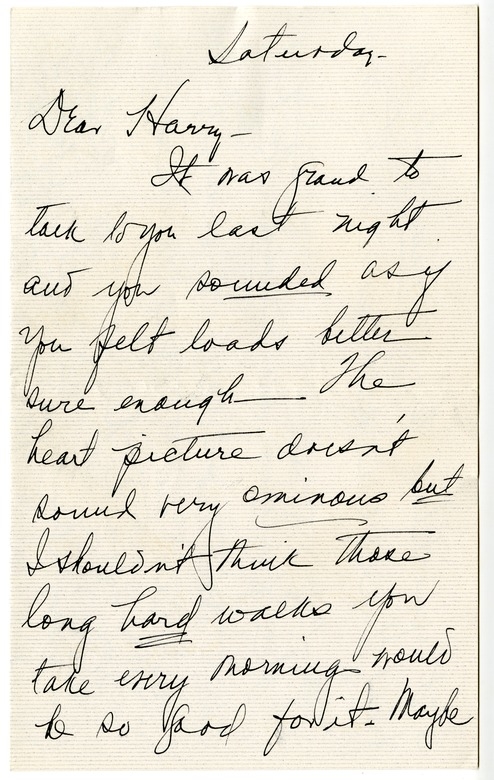 Saturday-
Dear Harry-
It was grand to
talk to you last night
and you sounded as if
you felt loads better
sure enough— The
heart picture doesn't
sound very ominous but
I shouldn't think those
long hard walks you
take every morning would
be so good for it- Maybe